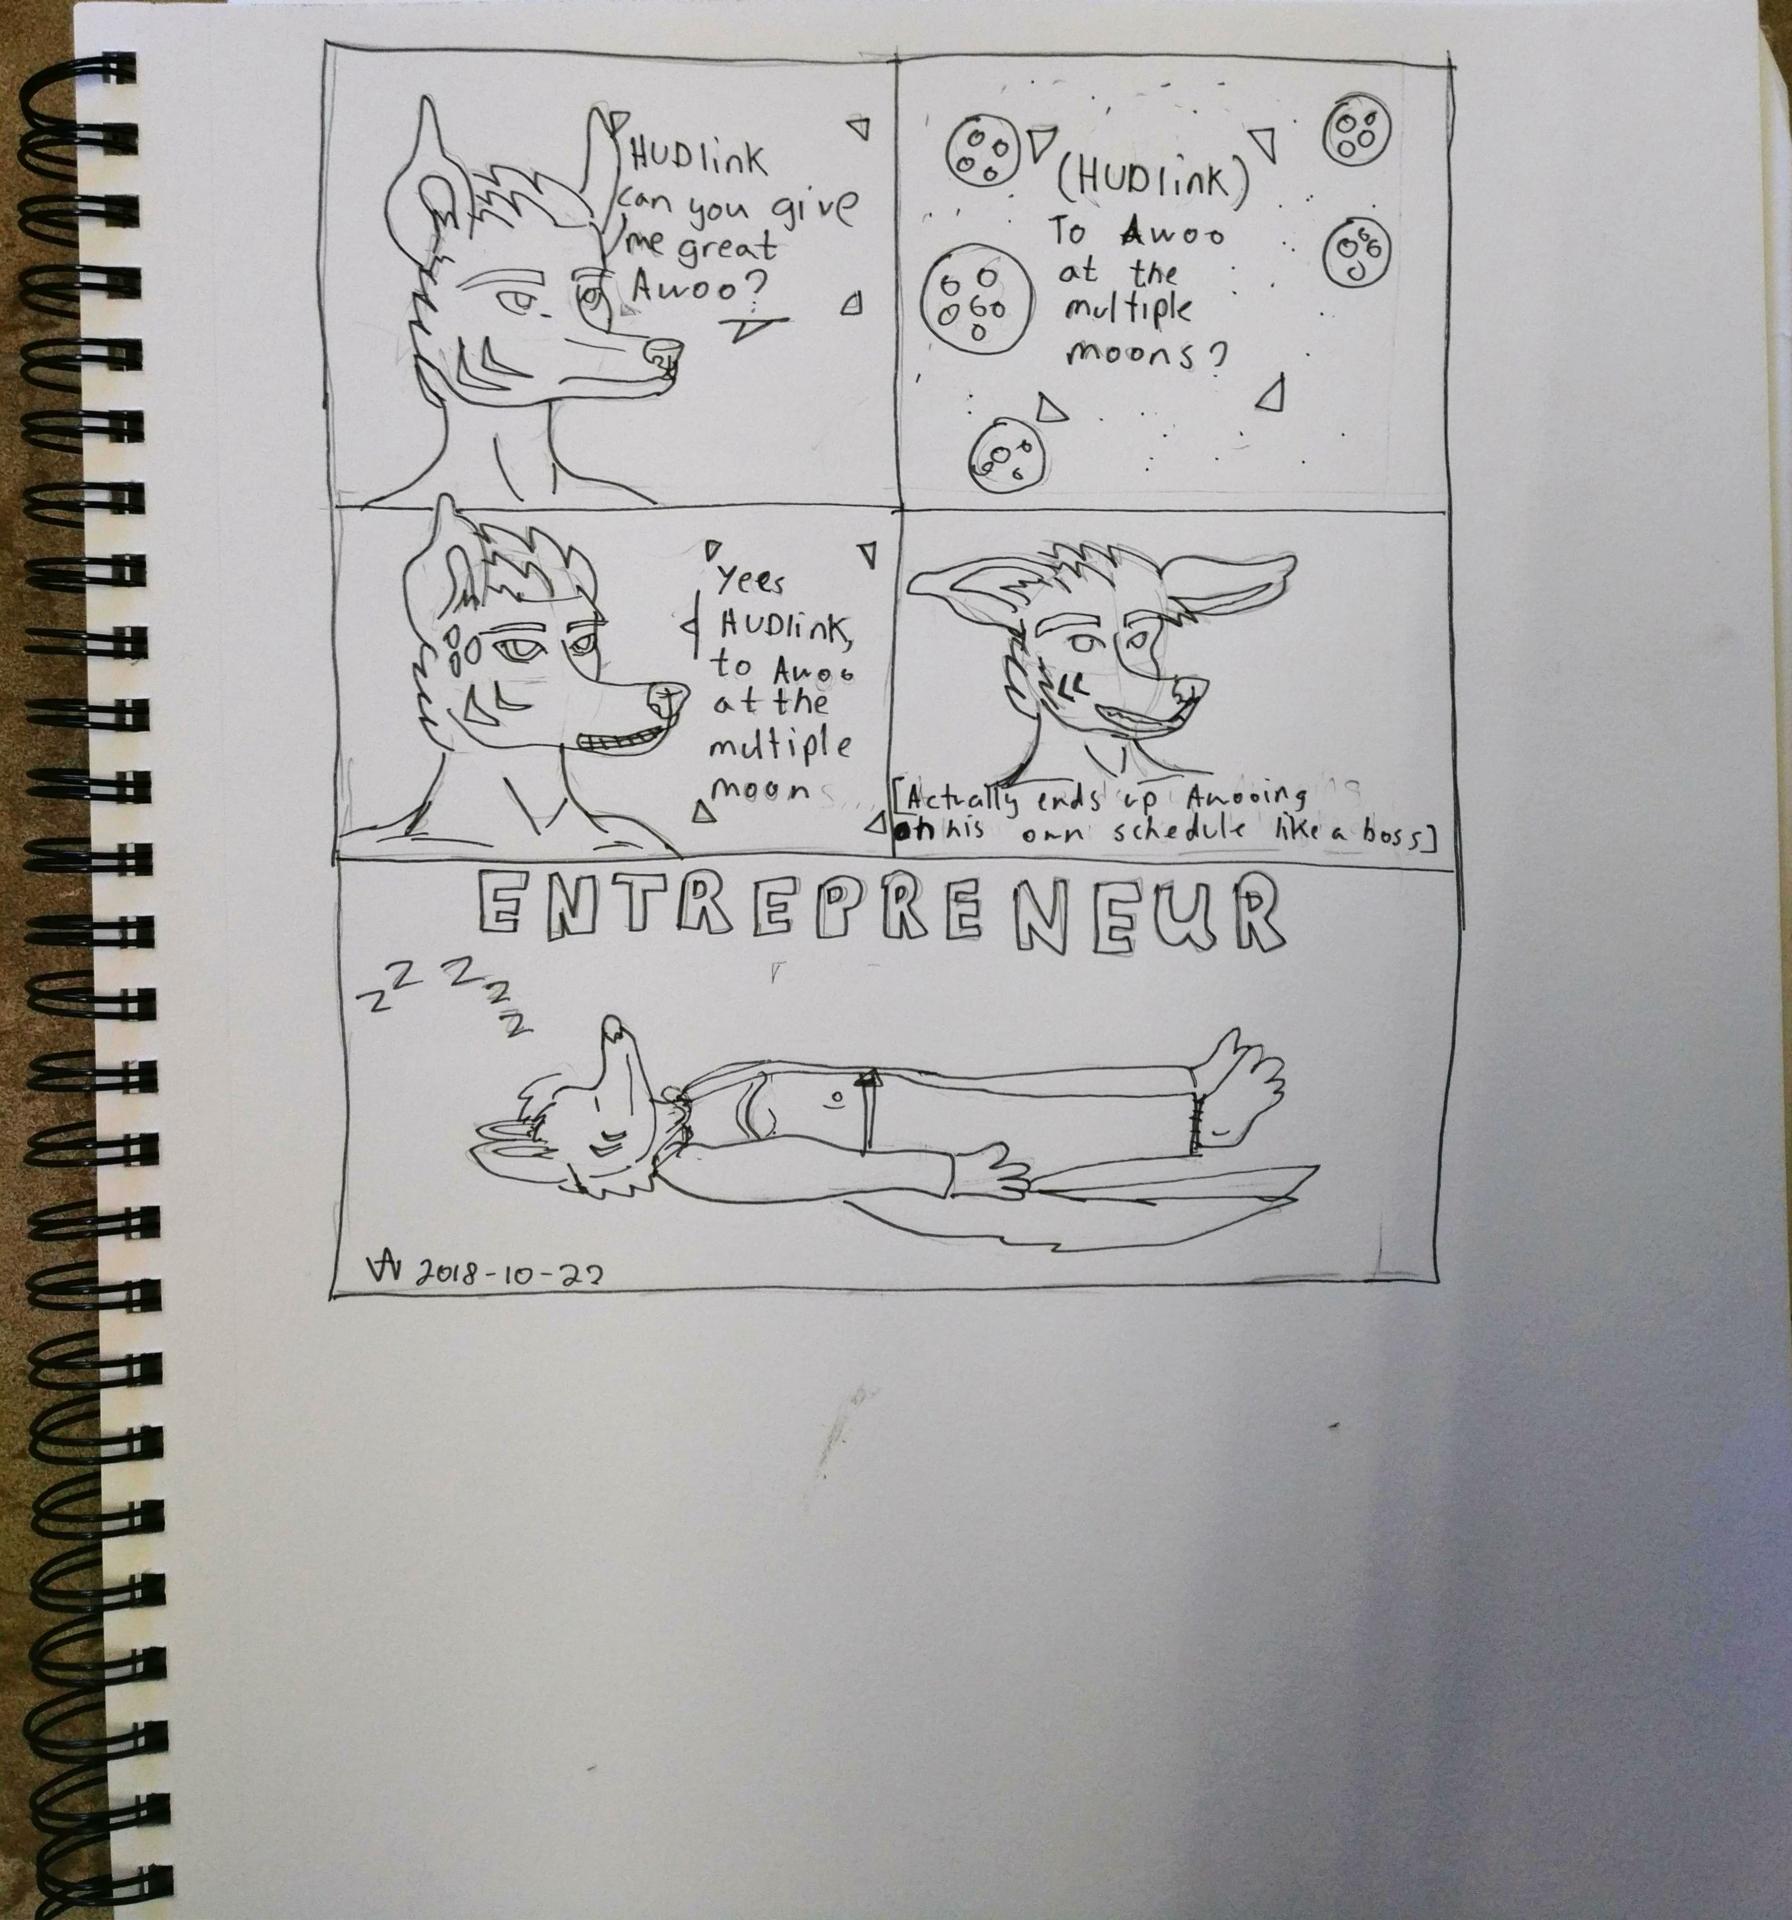 HUDlink
can you give
me great
Awoo?
(HUDlink)
To Awoo
at the
multiple
moons?
Yees
HUDlink,
to Awoo
at the
multiple
moons...
[Actually ends up Awooing
on his own schedule like a boss]
ENTREPRENEUR
z z z z z
2018-10-22